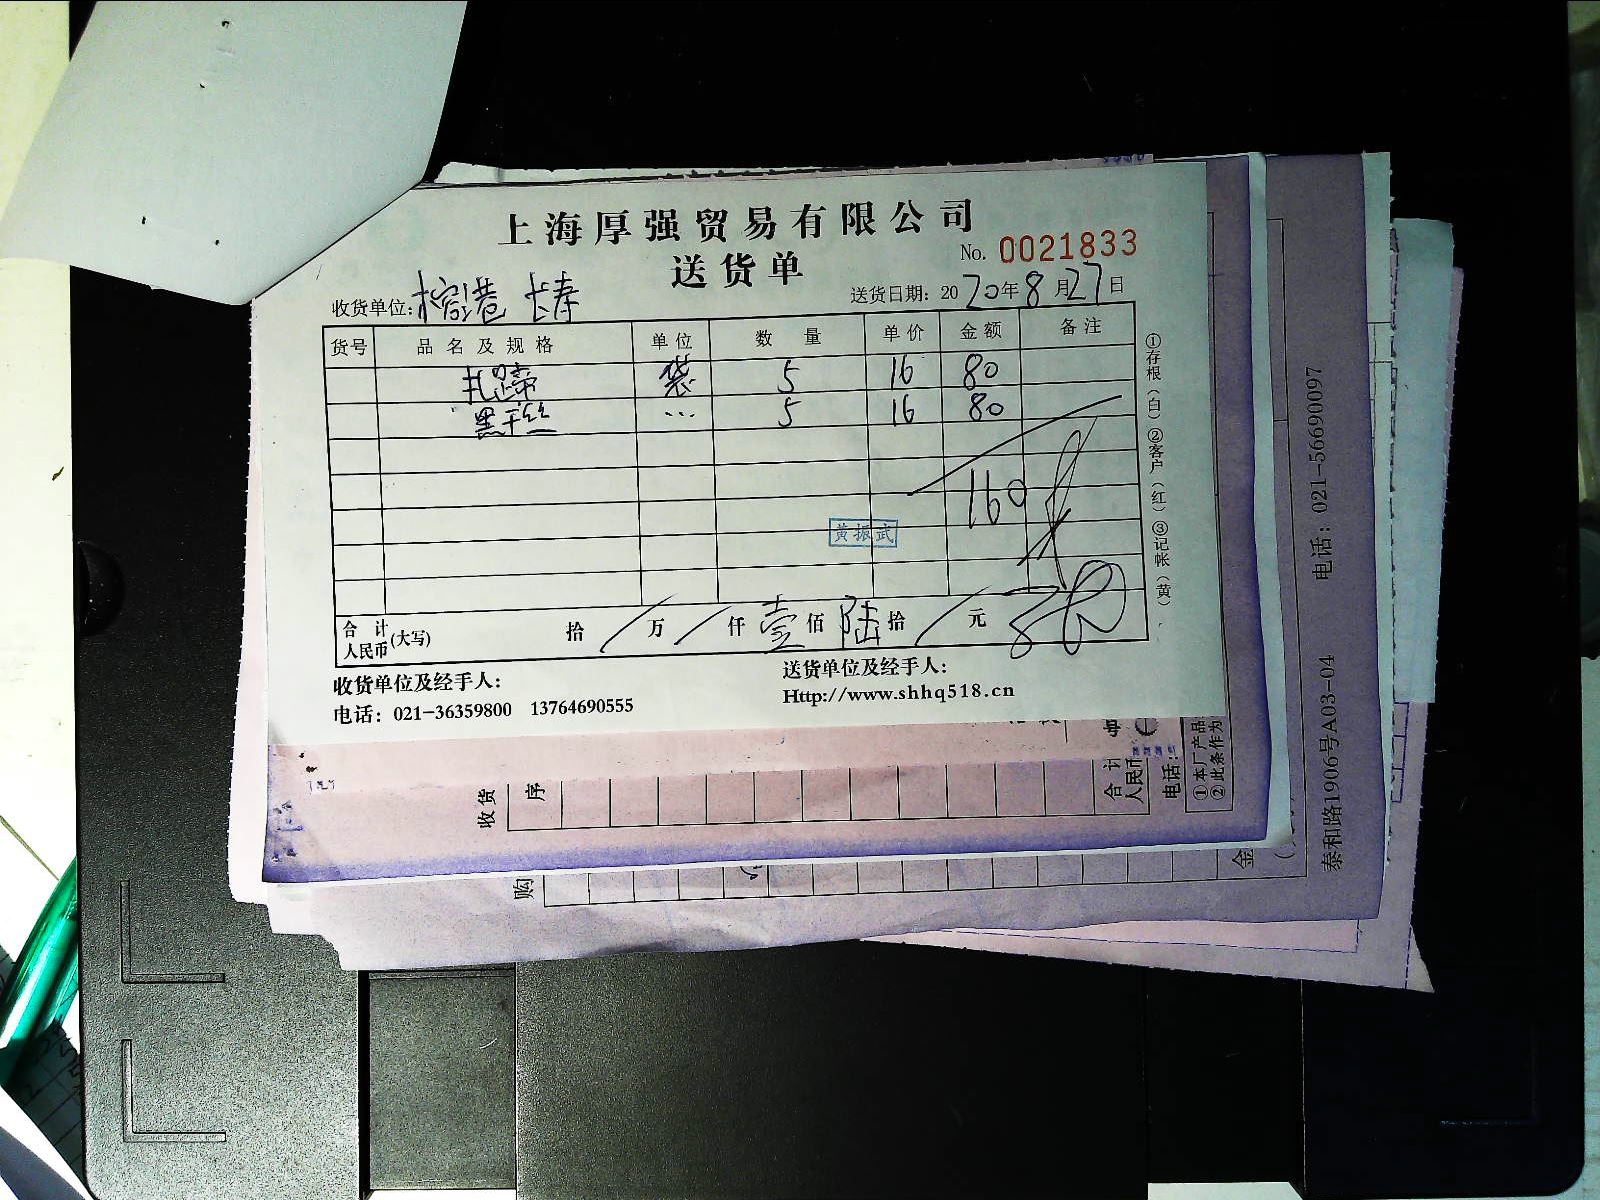 上海厚强贸易有限公司
送货单
No. 0021833
收货单位: 榕港 长寿
送货日期: 2020年8月27日
货号 品名及规格 单位 数量 单价 金额 备注
扎蹄 袋 5 16 80
黑千丝 … 5 16 80
160
黄振武
合计人民币(大写) 拾 / 万 / 仟 壹 佰 陆 拾 / 元
①存根(白)②客户(红)③记帐(黄)
收货单位及经手人:
送货单位及经手人:
电话: 021-36359800 13764690555
Http://www.shhq518.cn
收货
序
合计
人民币
电话:
①本厂产品
②此条作为
购
金
电话: 021-56690097
泰和路1906号A03-04